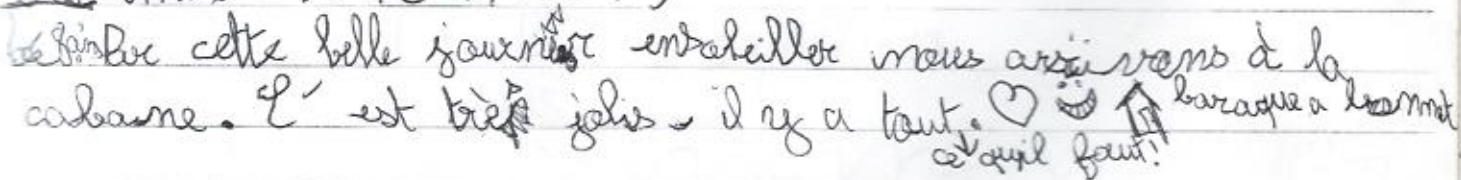 Par cette belle journer ensoleiller nous arrivons à la
cabane. C'est très jolis, il y a tout. baraque a
ce qu'il faut!